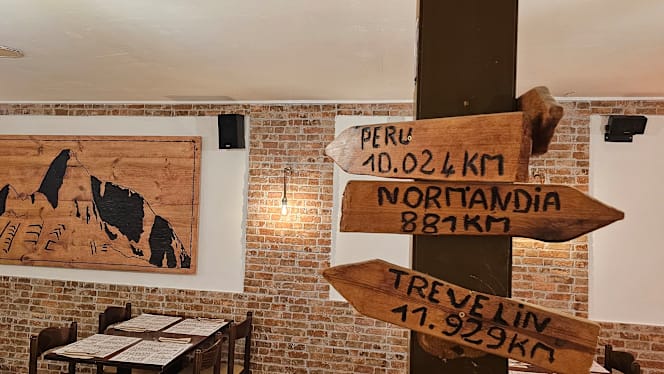 PERU
10.024KM
NORMANDiA
881KM
TREVELiN
11.929KM